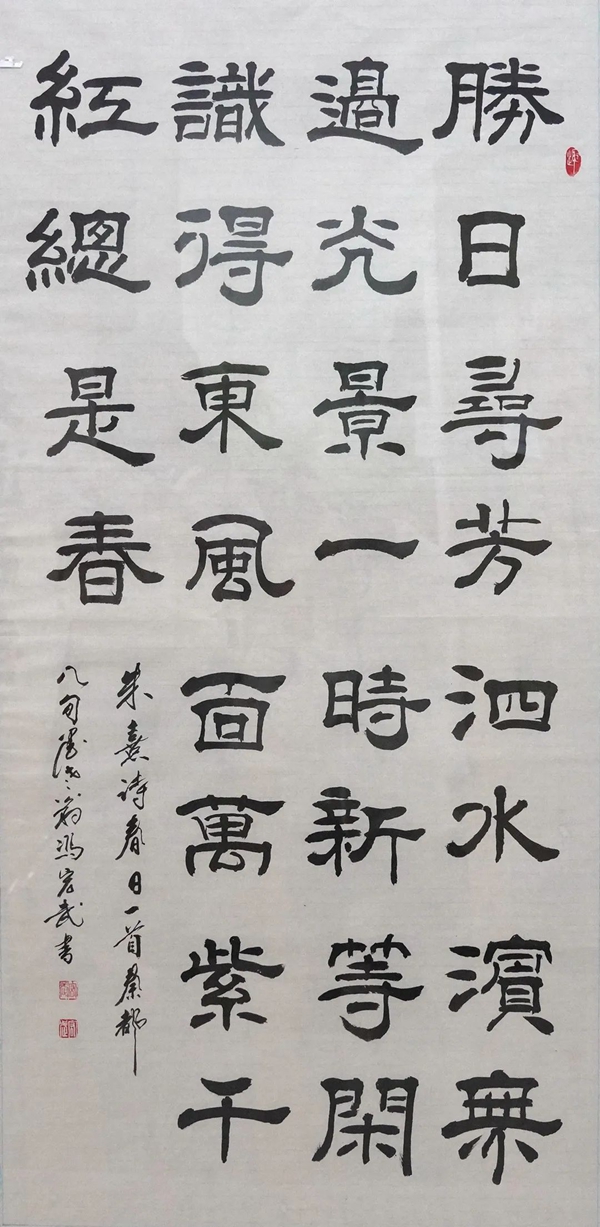 勝日尋芳泗水濱無
邊光景一時新等閑
識得東風面萬紫千
紅總是春
朱熹诗春日一首秦都
八旬翁冯宏武书